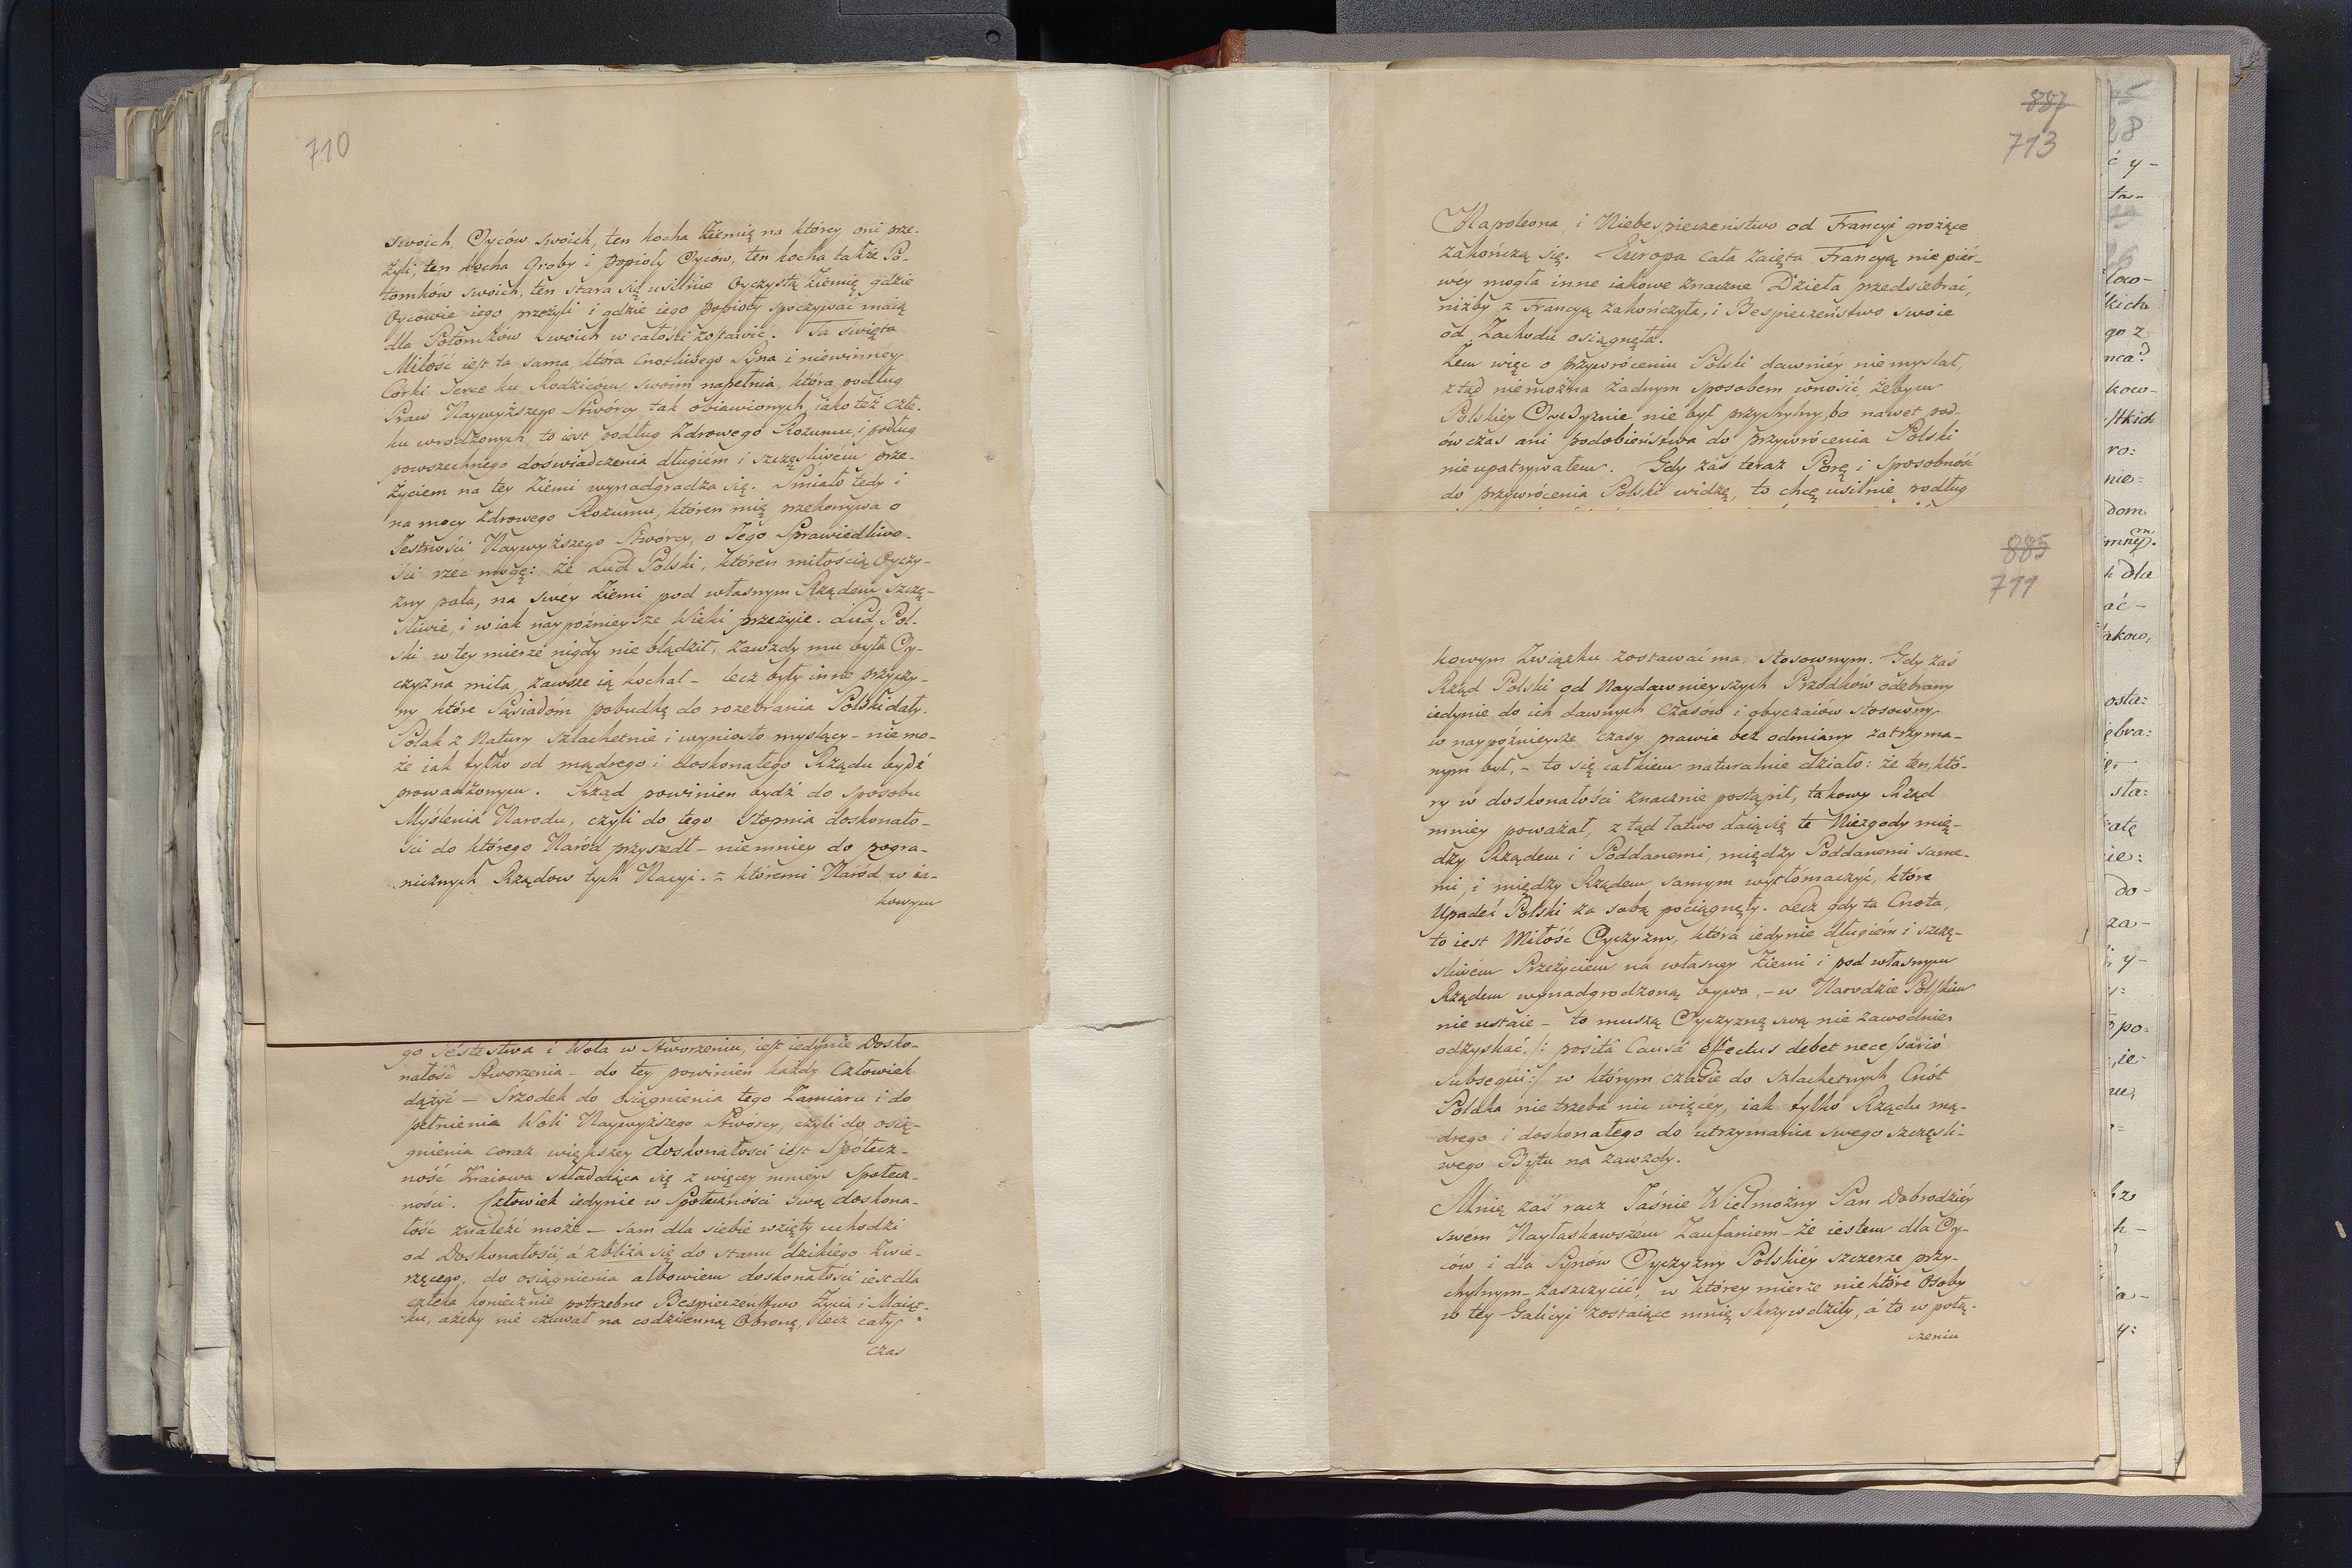 710
swoich, Oyców swoich, ten kocha Ziemię na którey oni prze-
żyli, ten kocha Groby i popioły Oyców, ten kocha także Po-
tomków swoich, ten stara się usilnie Oyczystą Ziemię gdzie
Oycowie iego przeżyli i gdzie iego popioły spoczywać maią
dla Potomków swoich w całości zostawić. Ta święta
Miłość iest ta sama, która Cnotliwego Syna i niewinney
Córki Serce ku Rodzicom swoim napełnia, która podług
Praw Naywyższego Stwórcy tak obiawionych, iako też człe-
ku wrodzonych, to iest podług Zdrowego Rozumu, i podług
powszechnego doświadczenia długiém i szczęśliwem prze-
życiem na tey Ziemi wynadgradza się. Smiało tedy i
na mocy Zdrowego Rozumu, któren mię przekonywa o
Jestności Naywyższego Stwórcy, o Jego Sprawiedliwo-
ści rzec mogę: że Lud Polski, któren miłością Oyczy-
zny pała, na swey Ziemi pod własnym Rządem szczę-
śliwie, i w iak naypóźnieysze Wieki przeżyie. Lud Pol-
ski w tey mierze nigdy nie błądził, zawzdy mu była Oy-
czyzna miła, zawsze ią kochał - lecz były inne przyczy-
ny które Sąsiadóm pobudkę do rozebrania Polski dały.
Polak z Natury szlachetnie i wyniosło myslący - niemo-
że iak tylko od mądrego i doskonałego Rządu bydź
prowadzonym. Rząd powinien bydź do sposobu
Myślenia Narodu, czyli do tego stopnia doskonało-
ści do którego Naród przyszedł - niemniey do pogra-
nicznych Rządow tych Nacyi - z któremi Naród w ia-
kowym
go Jestestwa i Wola w stworzeniu, iest iedynie Dosko-
nałość Stworzenia - do tey powinien każdy Człowiek
dążyć - Srzodek do osiągnienia tego Zamiaru i do
pełnienia Woli Naywyższego Stwórcy, czyli do osią-
gnienia coraz większey doskonałości iest Spółecz-
ność Kraiowa składaiąca się z więcey mnieys Społecz-
ności. Człowiek iedynie w Społeczności swą doskona-
łość znaleźć może - sam dla siebie wzięty uchodzi
od Doskonałości, á zbliża się do stanu dzikiego Zwie-
rzęcego, do osiągnienia albowiem doskonałości iest dla
człeka koniecznie potrzebne Bespieczeństwo Zycia i Maiąt-
ku, ażeby nie czuwał na codzienną Obronę, lecz cały
czas
887
713
Napoleona, i Niebespieczeństwo od Francyi grożące
zakończą się. Europa cała zaięta Francyą nie piér-
wéy mogła inne iakowe znaczne Dzieła przedsiebrać,
niżby z Francyą zakończyła, i Bespieczeństwo swoie
od Zachodu osiągnęła.
Zem więc o przywróceniu Polski dawniéy niemyslał,
z tąd niemożna żadnym sposobem wnosić, żebym
Polskiey Oyczyznie nie był przychylny, bo nawet pod-
ówczas ani podobieństwa do przywrócenia Polski
nieupatrywałem. Gdy zaś teraz Porę i sposobność
do przywrócenia Polski widzę, to chcę usilnie podług
885
711
kowym Związku zostawać ma, stosownym. Gdy zaś
Rząd Polski od Naydawnieyszych Przodków odebrany
iedynie do ich dawnych Czasów i obyczaiów stosowny
w naypóźnieysze czasy prawie bez odmiany zatrzyma-
nym był, - to się całkiem naturalnie działo: że ten, któ-
ry w doskonałości znacznie postąpił, takowy Rząd
mniey poważał, z tąd łatwo daią się te Niezgody mię-
dzy Rządem i Poddanemi, między Poddanemi same-
mi, i między Rządem samym wytłómaczyć, które
Upadek Polski za sobą pociągnęły. Lecz gdy ta Cnota,
to iest Miłość Oyczyzny, która iedynie długiém i szczę-
śliwém Przeżyciem na własney Ziemi i pod własnym
Rządem wynadgrodzoną bywa, - w Narodzie Polskim
nie ustaie - to muszą Oyczyznę swą nie zawodnie
odzyskać, /: positâ Causâ effectus debet necessariò
subsequi :/ w którym czasie do szlachetnych Cnót
Polaka nie trzeba nic więcéy, iak tylko Rządu mą-
drego i doskonałego do utrzymania swego szczęśli-
wego Bytu na zawzdy.
Mnię zaś racz Jaśnie Wielmożny Pan Dobrodziéy
swém Nayłaskawszém Zaufaniem - że iestem dla Oy-
ców i dla Synów Oyczyzny Polskiéy szczerze przy-
chylnym - zaszczycić, w którey mierze nie które Osoby
w tey Galicyi zostaiące mnię skrzywdziły, á to w połą-
czeniu